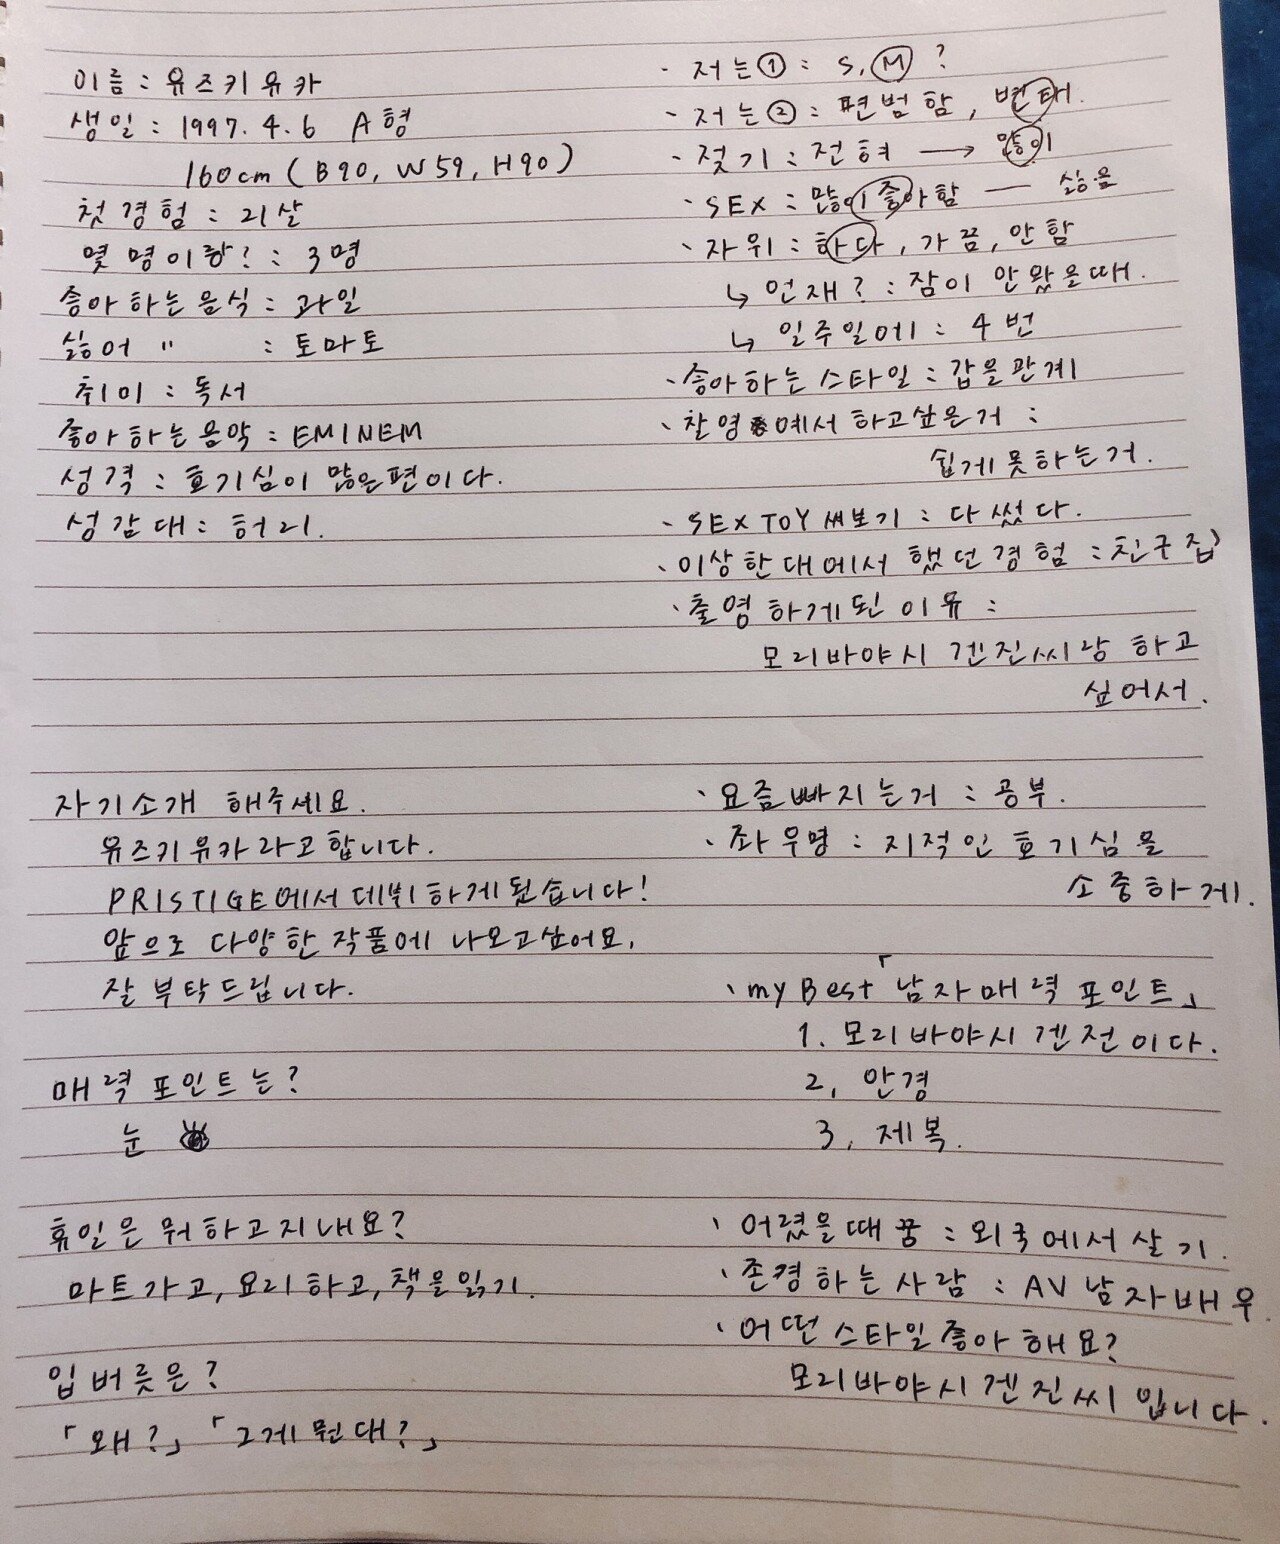 이름 : 유즈키유카
생일 : 1997.4.6 A형
160cm (B90, W59, H90)
첫경험 : 21살
몇명이랑? : 3명
좋아하는음식 : 과일
싫어 〃 : 토마토
취미 : 독서
좋아하는음악 : EMINEM
성격 : 호기심이 많은편이다.
성감대 : 허리.
· 저는① : S, M ?
· 저는② : 편범함, 변태.
· 젖기 : 전혀 → 많이
· SEX : 많이좋아함 — 싫음
· 자위 : 하다, 가끔, 안함
↳ 언재? : 잠이 안왔을때.
↳ 일주일에 : 4번
· 좋아하는스타일 : 갑을관계
· 촬영에서 하고싶은거 :
쉽게못하는거.
· SEX TOY 써보기 : 다썼다.
· 이상한대에서 했던경험 : 친구집
· 출영하게된이유 :
모리바야시 겐진씨랑 하고
싶어서.
자기소개 해주세요.
유즈키유카라고합니다.
PRISTIGE에서데뷔하게됬습니다!
앞으로 다양한작품에나오고싶어요.
잘부탁드립니다.
매력포인트는?
눈
휴일은뭐하고지내요?
마트가고, 요리하고, 책을읽기.
입버릇은?
「왜?」「그게뭔대?」
· 요즘빠지는거 : 공부.
· 좌우명 : 지적인호기심을
소중하게.
· my Best 「남자매력포인트」
1. 모리바야시겐전이다.
2, 안경
3, 제복.
· 어렸을때꿈 : 외국에서살기.
· 존경하는사람 : AV남자배우.
· 어떤스타일좋아해요?
모리바야시겐진씨입니다.